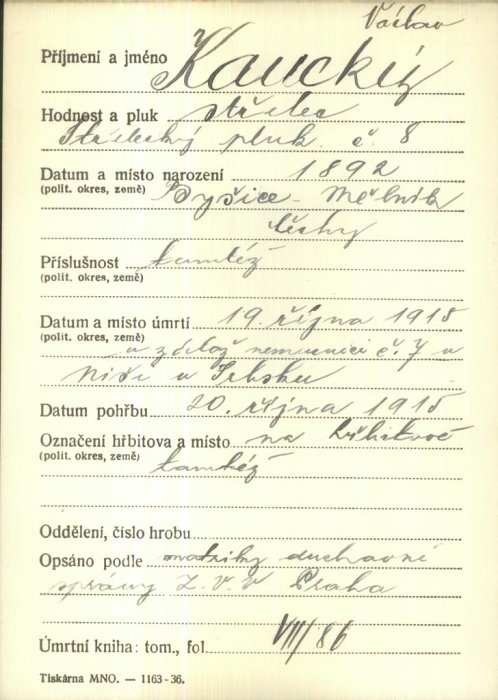 Václav
Příjmení a jméno Kaucký
Hodnost a pluk střelec
Střelecký pluk č. 8
Datum a místo narození 1892
(polit. okres, země) Byšice - Mělník
Čechy
Příslušnost tamtéž
(polit. okres, země)
Datum a místo úmrtí 19. října 1915
(polit. okres, země) v zálož nemocnici č. 7 v
Niši v Srbsku
Datum pohřbu 20. října 1915
Označení hřbitova a místo na hřbitově
(polit. okres, země) tamtéž
Oddělení, číslo hrobu
Opsáno podle matriky duchovní
správy Z. V. V Praha
Úmrtní kniha: tom., fol. VIII/86
Tiskárna MNO. — 1163-36.